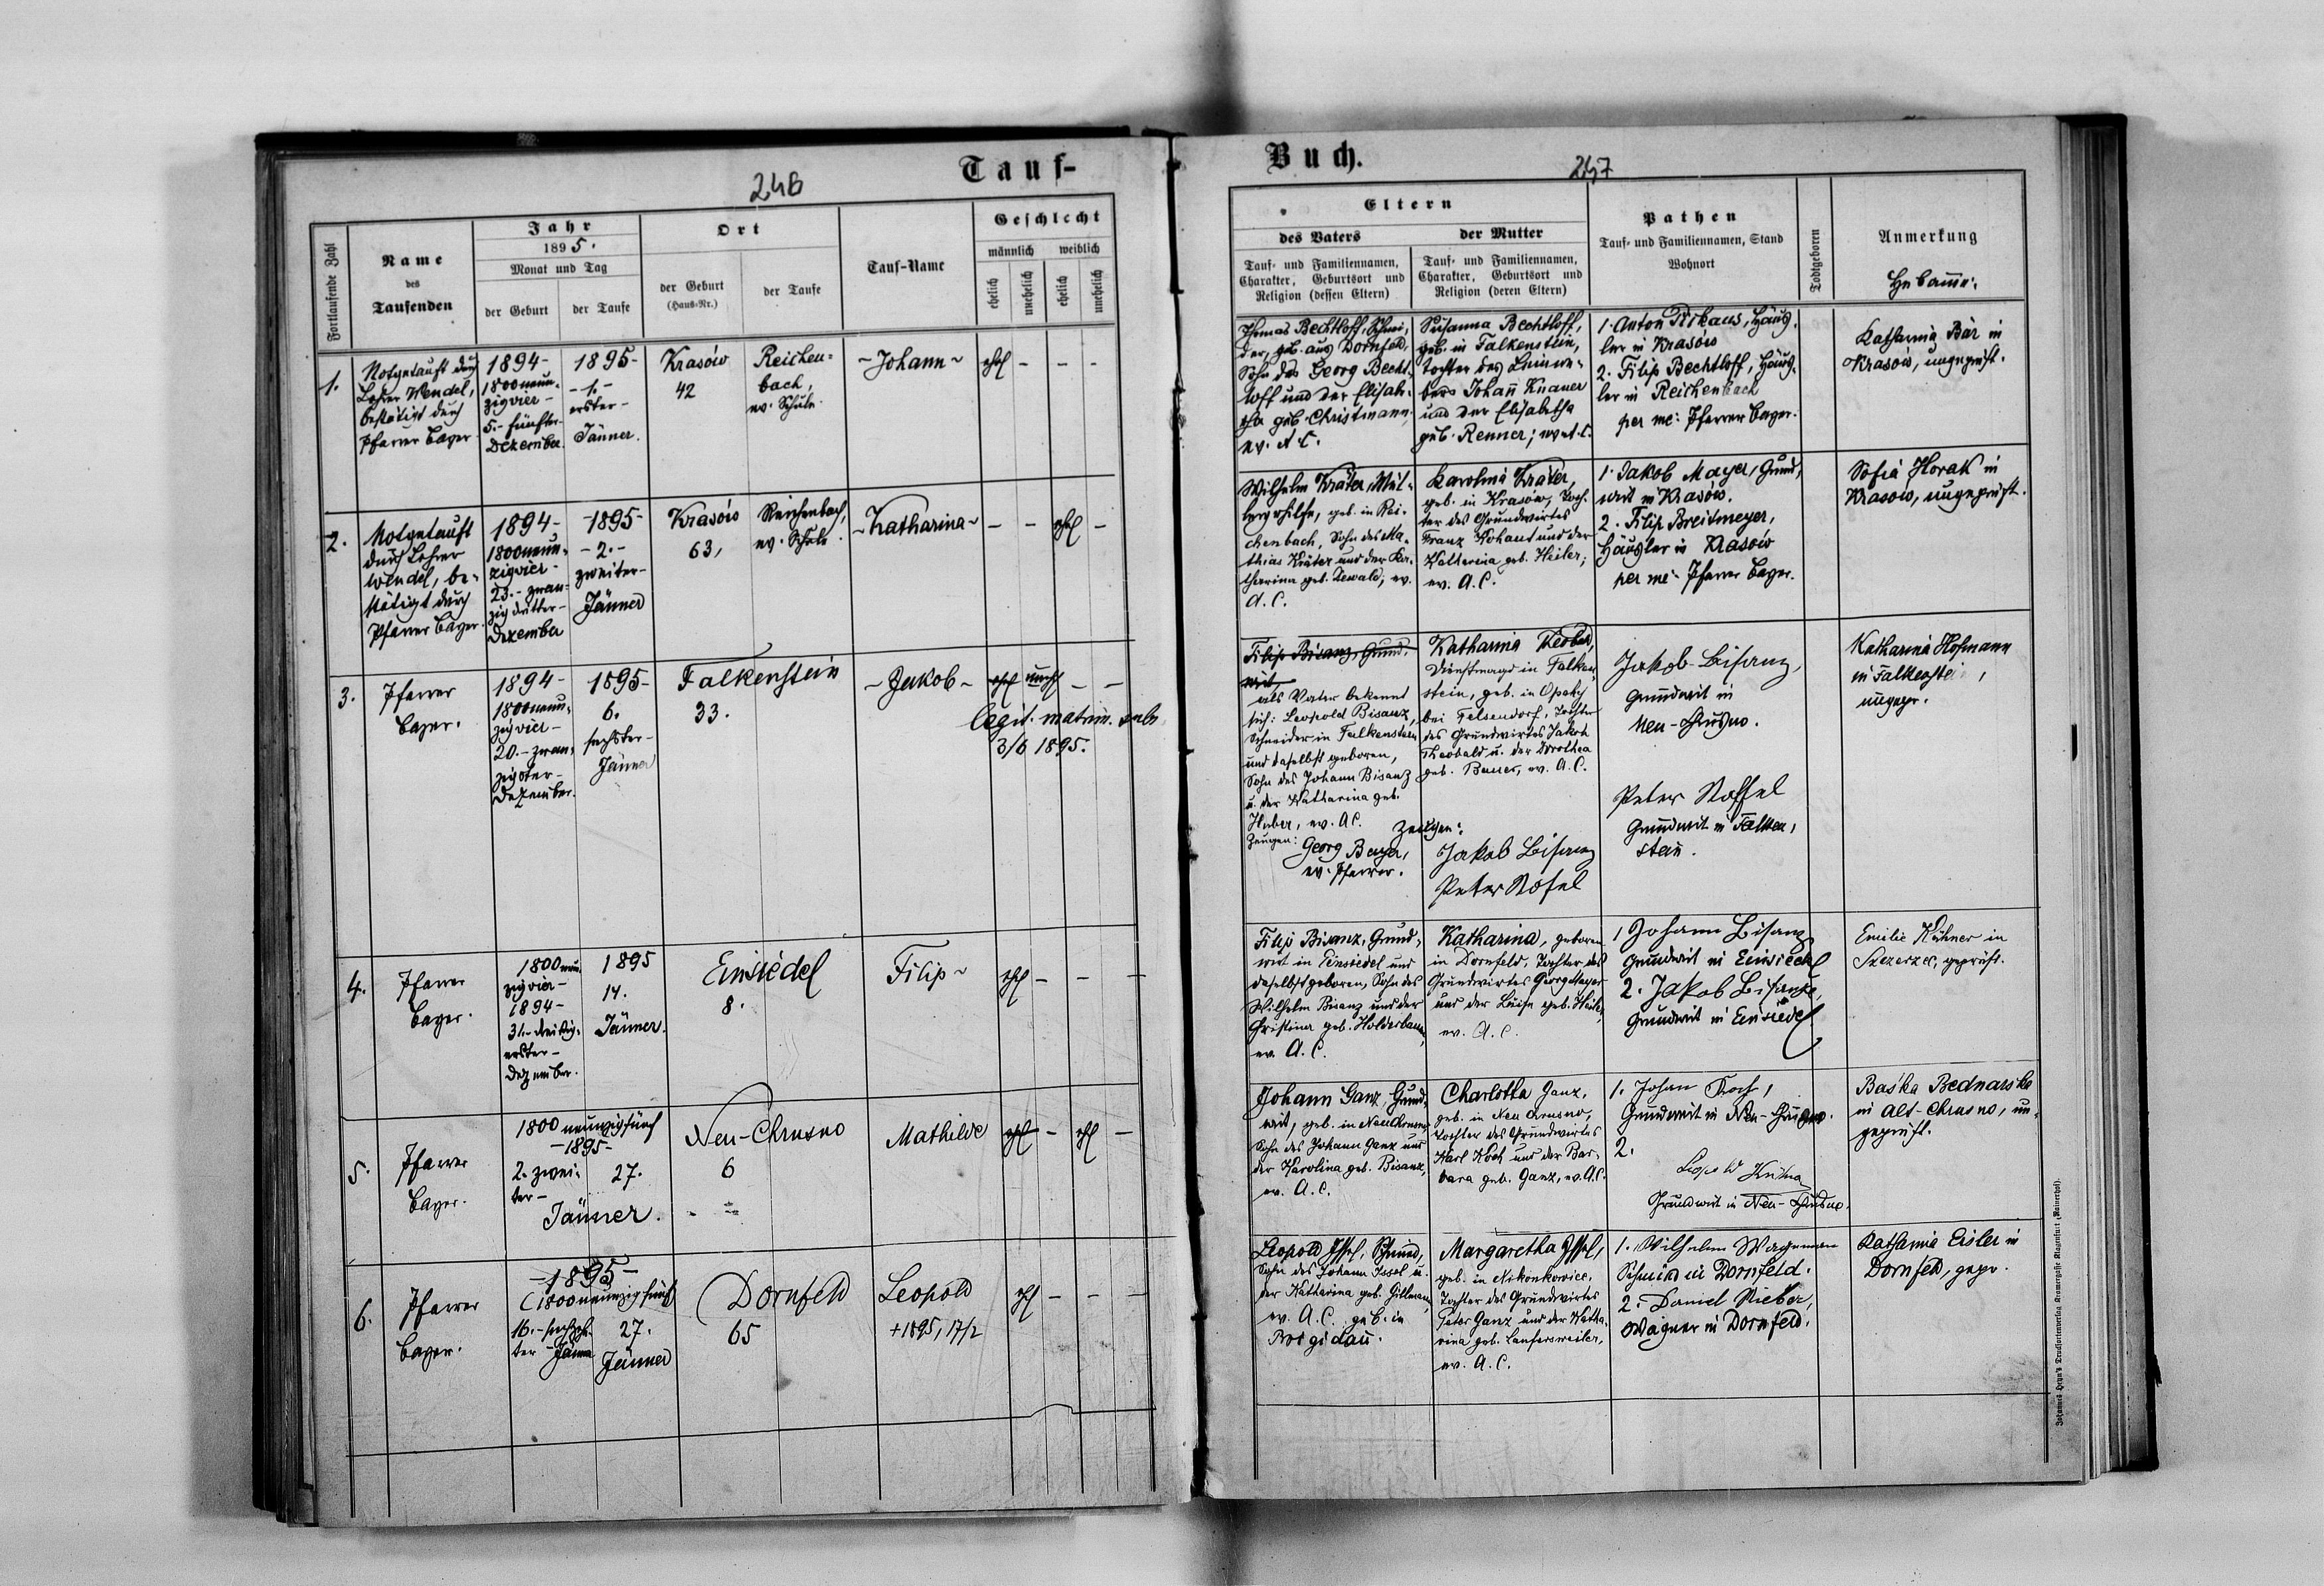 246
Tauf-
Fortlaufende Zahl
Name
des
Taufenden
Jahr
1895.
Monat und Tag
der Geburt
der Taufe
Ort
der Geburt
(Haus-Nr.)
der Taufe
Tauf-Name
Geschlecht
männlich
weiblich
ehelich
unehelich
ehelich
unehelich
1.
Notgetauft durch
Lehrer Wendel,
bestätigt durch
Pfarrer Bayer
1894-
1800neun-
zigvier-
5.- fünfter-
Dezember
1895-
-1.-
erster-
Jänner.
Krasów
42
Reichen-
bach,
ev. Schule
-Johann-
ehel
-
-
-
2.
Notgetauft
durch Lehrer
Wendel, be-
stätigt durch
Pfarrer Bayer.
1894-
1800neun-
zigvier-
23.- zwan-
zig dritter-
Dezember
1895-
-2.-
zweiter-
Jänner
Krasów
63,
Reichenbach,
ev. Schule
-Katharina-
-
-
ehel
-
3.
Pfarrer
Bayer.
1894-
1800neun-
zigvier-
20.- zwan-
zigster-
Dezember.
1895-
6.
sechster-
Jänner
Falkenstein
33.
-Jakob-
ehel unehl - -
legit. matrim. subs
3/6 1895.
4.
Pfarrer
Bayer.
1800neun-
zigvier-
1894-
31.- dreißig-
erster-
Dezember.
1895
14.
Jänner.
Einsiedel
8.
Filip-
ehel
-
-
-
5.
Pfarrer
Bayer.
1800 neunzigfünf
-1895-
2. zwei-
ter-
27.
Jänner.
Neu-Chrusno
6
Mathilde
ehel
-
ehel
-
6.
Pfarrer
Bayer.
-1895-
(1800neunzigfünf)
16.- sechzehn-
ter- Jänner
27.
Jänner
Dornfeld
65
Leopold
+1895, 17/2
ehel
-
-
-
Buch.
247
Eltern
des Vaters
der Mutter
Tauf- und Familiennamen,
Charakter, Geburtsort und
Religion (dessen Eltern)
Tauf- und Familiennamen,
Charakter, Geburtsort und
Religion (deren Eltern)
Pathen
Tauf- und Familiennamen, Stand
Wohnort
Todtgeboren
Anmerkung
Hebamme.
Thomas Bechtloff, Schnei-
der, geb. aus Dornfeld,
Sohn des Georg Becht-
loff und der Elisabe-
tha geb. Christmann,
ev. A.C.
Susanna Bechtloff,
geb. in Falkenstein,
Tochter des Leinwe-
bers Johann Knauer
und der Elisabetha
geb. Renner; ev. A.C.
1. Anton Pirkaus, Häus-
ler in Krasów
2. Filip Bechtloff, Häus-
ler in Reichenbach
per me: Pfarrer Bayer.
Katharina Bär in
Krasów, ungeprüft.
Wilhelm Kräter, Mül-
lergehilfe, geb. in Rei-
chenbach, Sohn des Ma-
thias Kräter und der Ka-
tharina geb. Dewald; ev.
A.C.
Karolina Kräter,
geb. in Krasów, Toch-
ter des Grundwirtes
Franz Kohaut und der
Katharina geb. Heiler;
ev. A.C.
1. Jakob Mayer, Grund-
wirt in Krasów.
2. Filip Breitmeyer,
Häusler in Krasów
per me: Pfarrer Bayer.
Sofia Horak in
Krasów, ungeprüft.
Filip Bisanz, Grund-
wirt
als Vater bekennt
sich: Leopold Bisanz,
Schneider in Falkenstein
und daselbst geboren,
Sohn des Johann Bisanz
u. der Katharina geb.
Huber, ev. A.C.
Zeugen:
Georg Bayer,
ev. Pfarrer.
Katharina
Dienstmagd in Falken-
stein, geb. in Opaky
bei Felsendorf, Tochter
des Grundwirtes Jakob
Theobald u. der Dorothea
geb. ev. A.C.
Zeugen:
Jakob Bisanz
Peter Rosel
Jakob Bisanz,
Grundwirt in
Neu-Chrusno.
Peter
Grundwirt in Falken-
stein.
Katharina Hofmann
in Falkenstein,
ungepr.
Filip Bisanz, Grund-
wirt in Einsiedel und
daselbst geboren, Sohn des
Wilhelm Bisanz und der
Christina geb. Holderbaum,
ev. A.C.
Katharina, geboren
in Dornfeld, Tochter des
Grundwirtes Georg Mayer
und der Luise geb.
ev. A.C.
1 Johann Bisanz
Grundwirt in Einsiedel
2. Jakob Bisanz,
Grundwirt in Einsiedel
Emilie Kühner in
Szczerzec, geprüft.
Johann Ganz, Grund-
wirt, geb. in Neu Chrusno,
Sohn des Johann Ganz und
der Karolina geb. Bisanz,
ev. A.C.
Charlotta Ganz,
geb. in Neu Chrusno,
Tochter des Grundwirtes
Karl Koch und der Bar-
bara geb. Ganz, ev. A.C.
1. Johann Koch,
Grundwirt in Neu-Chrusno.
2.
Leopold
Grundwirt in Neu-Chrusno.
Baśka Bednarska
in Alt-Chrusno, un-
geprüft.
Leopold Issel, Schmied,
Sohn des Johann Issel u.
der Katharina geb. Gillmann,
ev. A.C. geb. in
Brigidau.
Margaretha Issel,
geb. in Nikonkowice,
Tochter des Grundwirtes
Peter Ganz und der Katha-
rina geb. Laufersweiler,
ev. A.C.
1. Wilhelm Wagemann
Schmied in Dornfeld.
2. Daniel Nieber,
Wagner in Dornfeld.
Katharina Eisler in
Dornfeld, gepr.